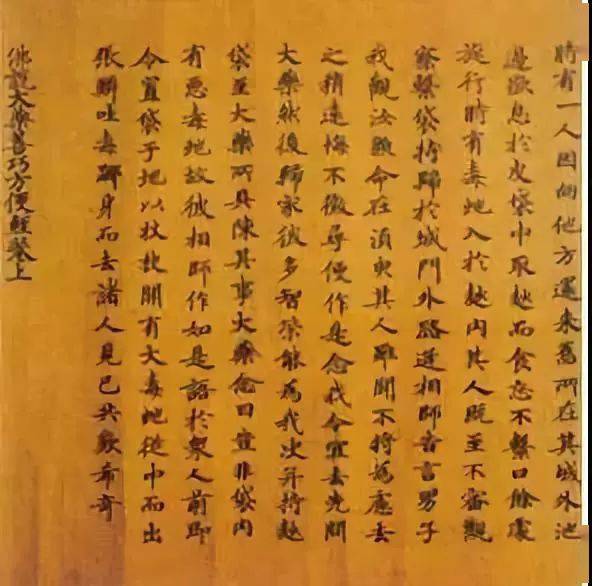 時有一人因向他方還来舊所在其城外池
邊歇息於皮袋中取麨而食忘不繫口餘處
旋行時有毒虵入於麨内其人既至不審觀
察繫袋持歸於城門外路逢相師告言男子
我觀汝顏命在須臾其人雖聞不將為慮去
之稍遠悔不徵尋便作是念我今宜去先問
大藥然後歸家彼多智策能為我决并持麨
袋至大藥所具陳其事大藥念曰豈非袋内
有惡毒虵故彼相師作如是語於衆人前即
令置袋于地以杖披開有大毒虵從中而出
張鱗吐毒擲身而去諸人見已共歎希奇
佛說大藥善巧方便經卷上